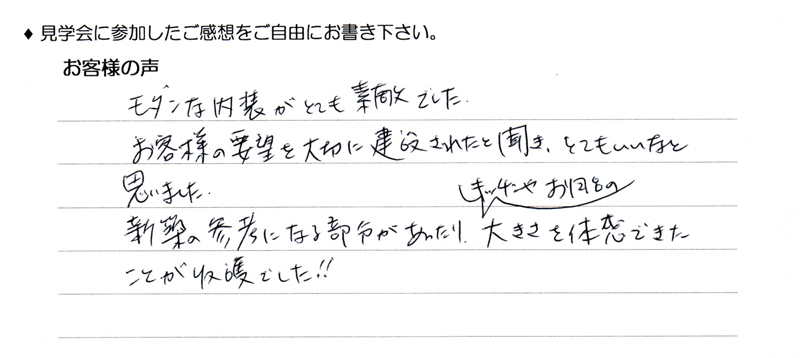 ♦ 見学会に参加したご感想をご自由にお書き下さい。
お客様の声
モダンな内装がとても素敵でした。
お客様の要望を大切に建設されたと聞き、とてもいいなと
思いました。
キッチンや お風呂の
新築の参考になる部分があったり、大きさを体感できた
ことが収穫でした!!